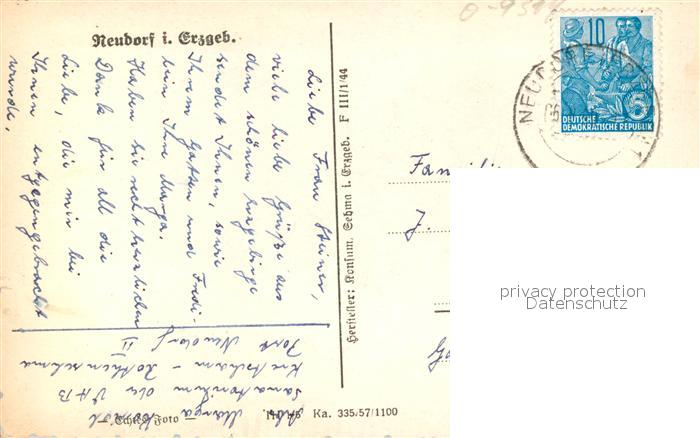 Neudorf i. Erzgeb.
Liebe Frau Steiner,
viele liebe Grüße aus
dem schönen Erzgebirge
sendet Ihnen, sowie
Ihrem Gatten und Fredi
Ihre Marga.
Haben Sie recht herzlichen
Dank für all die
Liebe, die mir bei
Ihnen entgegengebracht
wurde.
Abs. Marga
Sanatorium der
Kretscham - Rothensehma
Post Neudorf II
Echt Foto
Ka. 335/57/1100
Hersteller: Konsum, Sehma i. Erzgeb. F III/1/44
10
5
DEUTSCHE
DEMOKRATISCHE REPUBLIK
NEUDORF
Famili
J.
privacy protection
Datenschutz